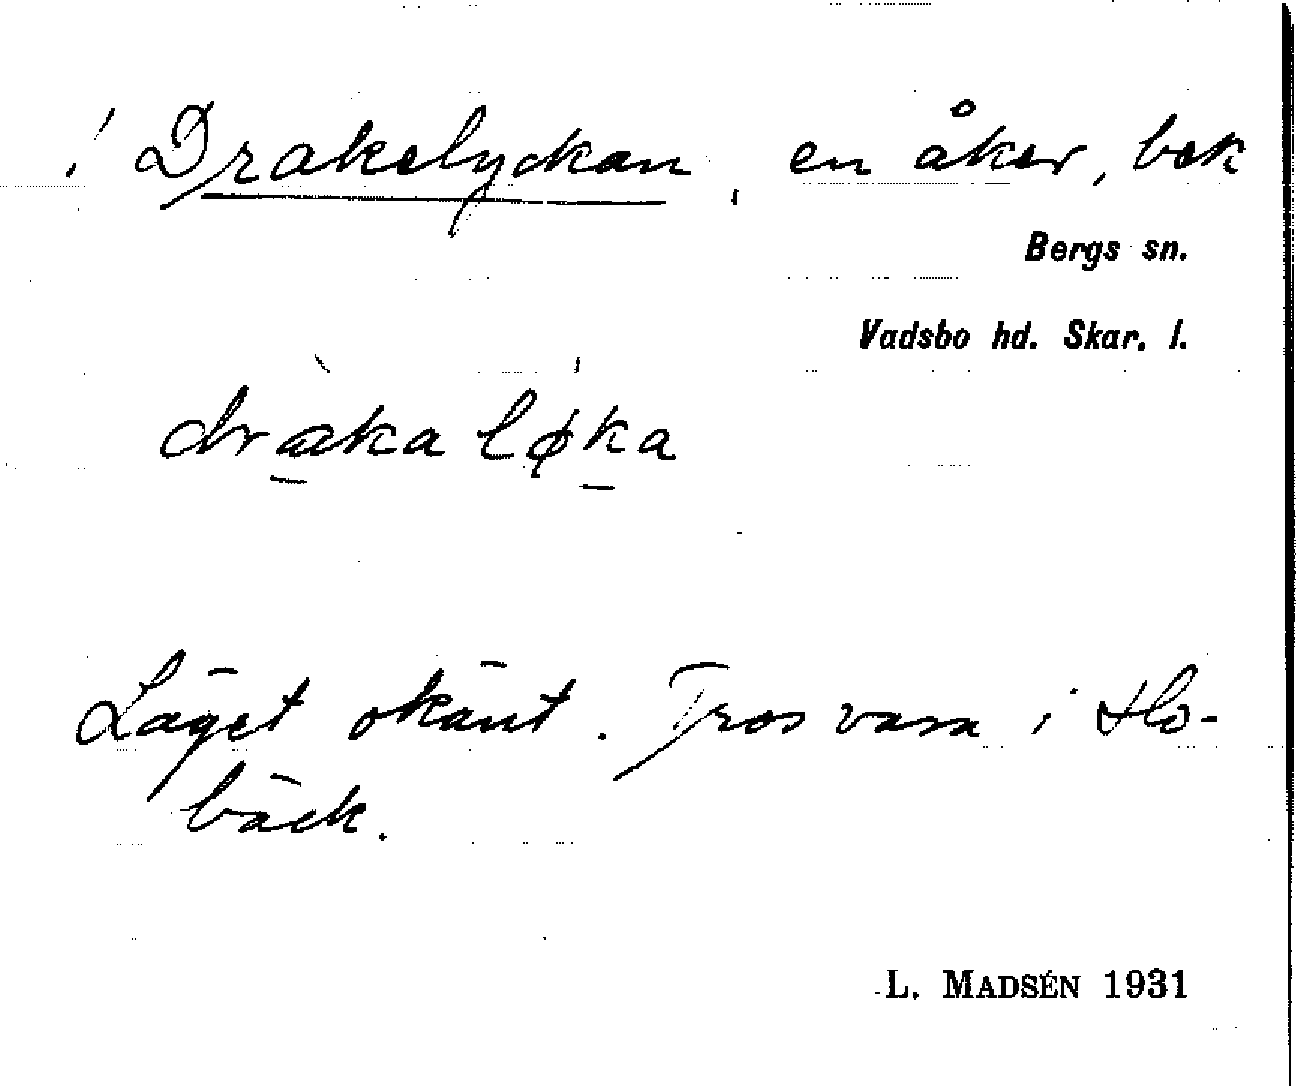 ! Drakelyckan, en åker, bek
Bergs sn.
Vadsbo hd. Skar. l.
dràka lǿka
Läget okänt. Tros vara i Ho-
bäck.
L. MADSÉN 1931